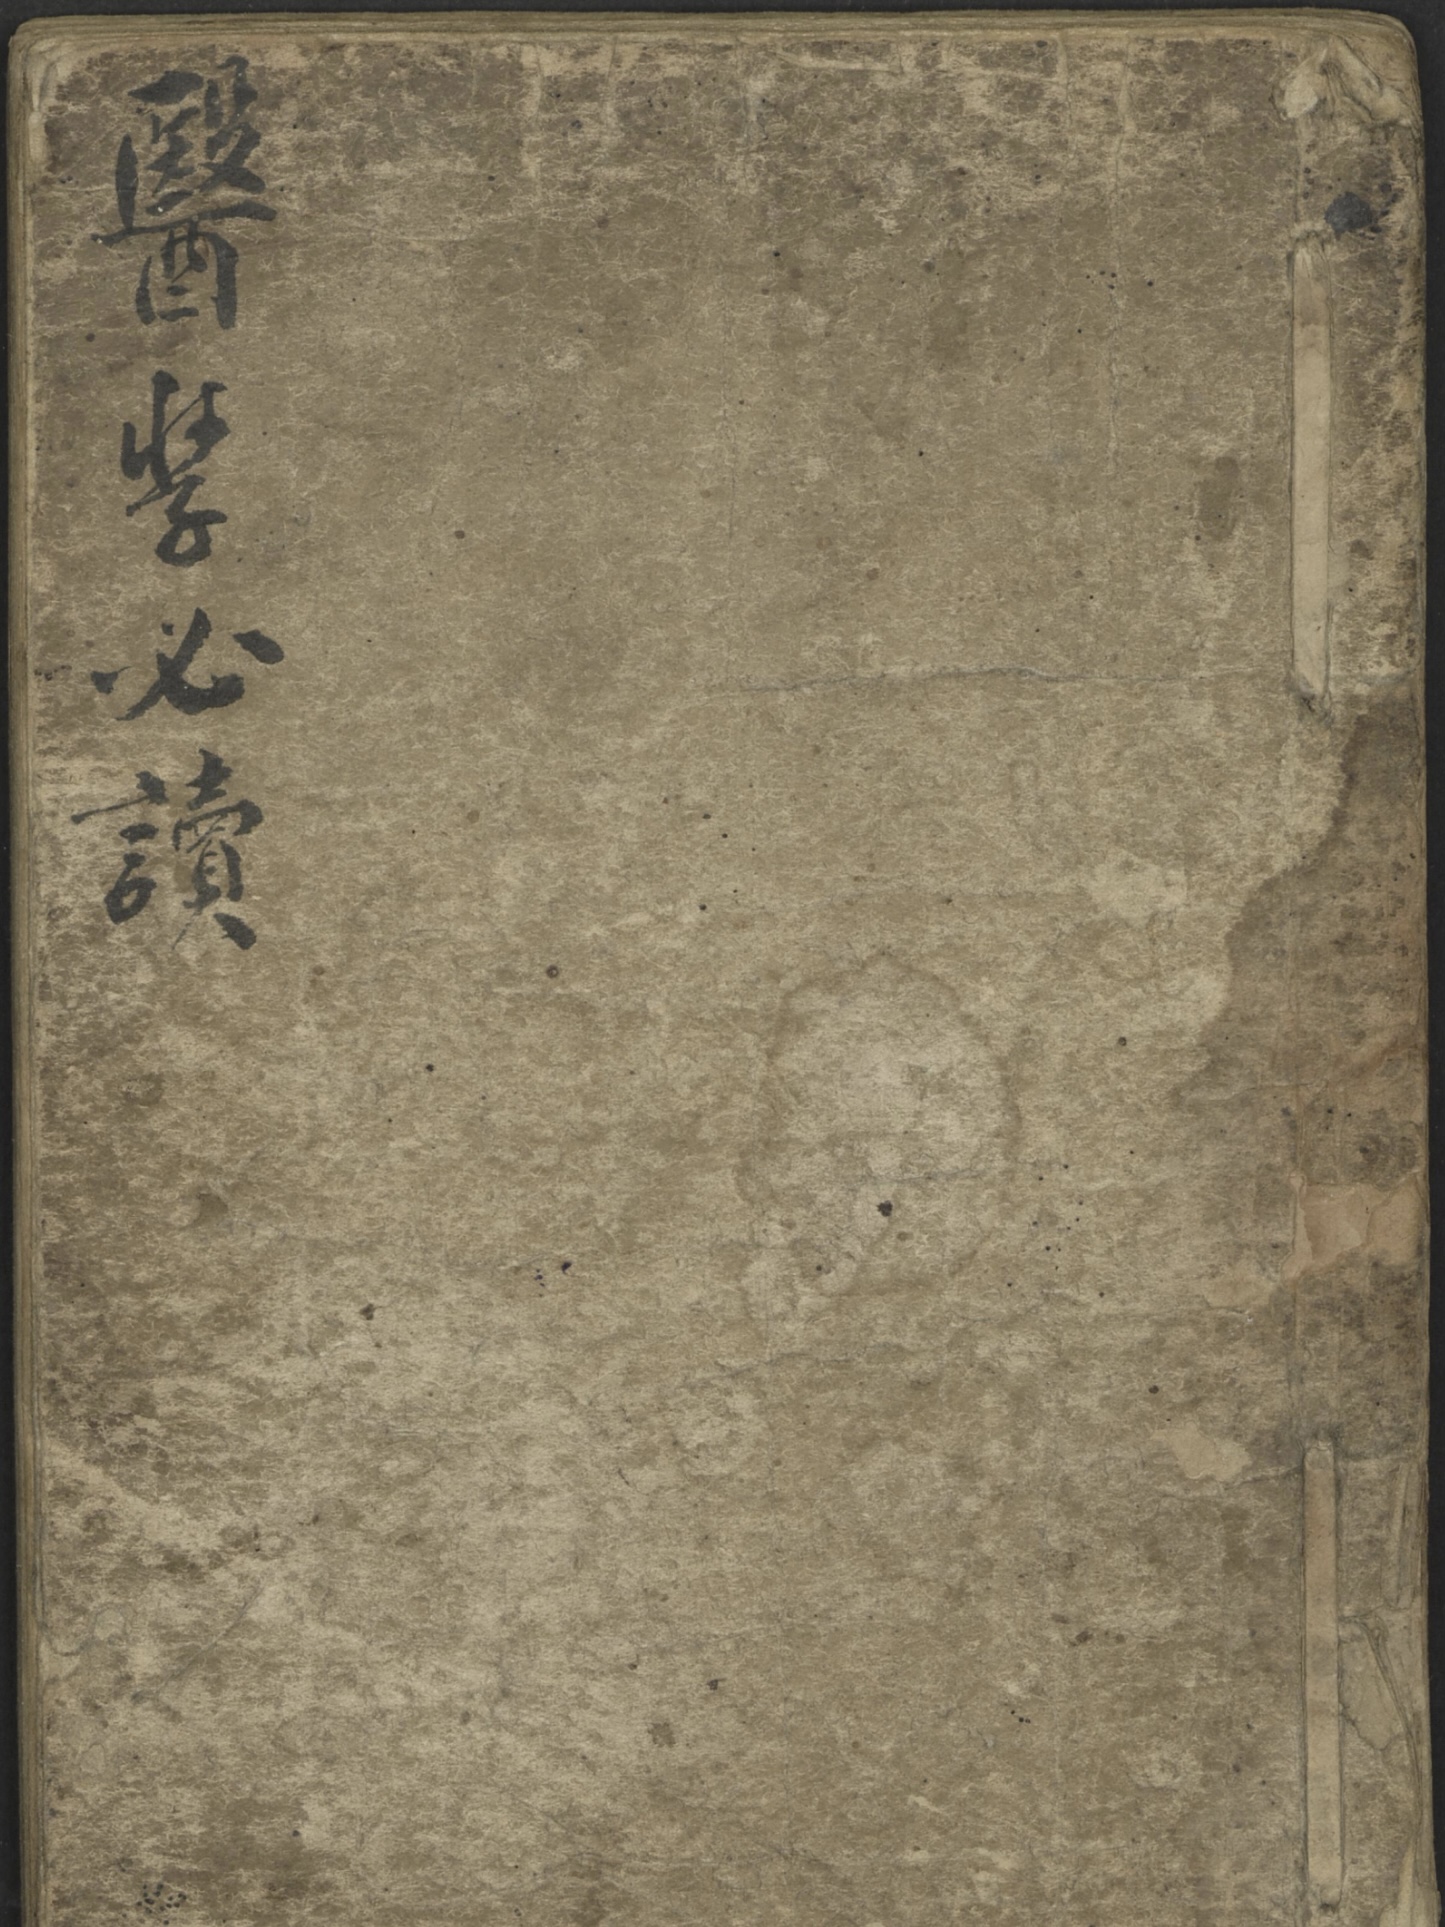 醫學必讀